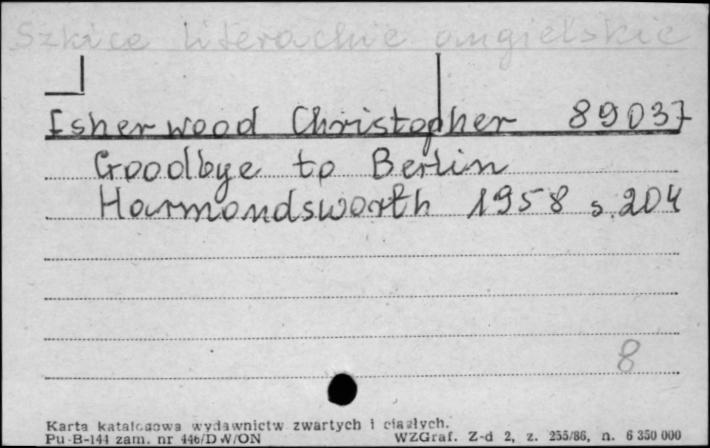 Szkice literackie angielskie
Isherwood Christopher 89037
Goodbye to Berlin
Harmondsworth 1958 s. 204
8
Karta katalogowa wydawnictw zwartych i ciągłych.
Pu-B-144 zam. nr 446/DW/ON WZGraf. Z-d 2, z. 255/86, n. 6 350 000